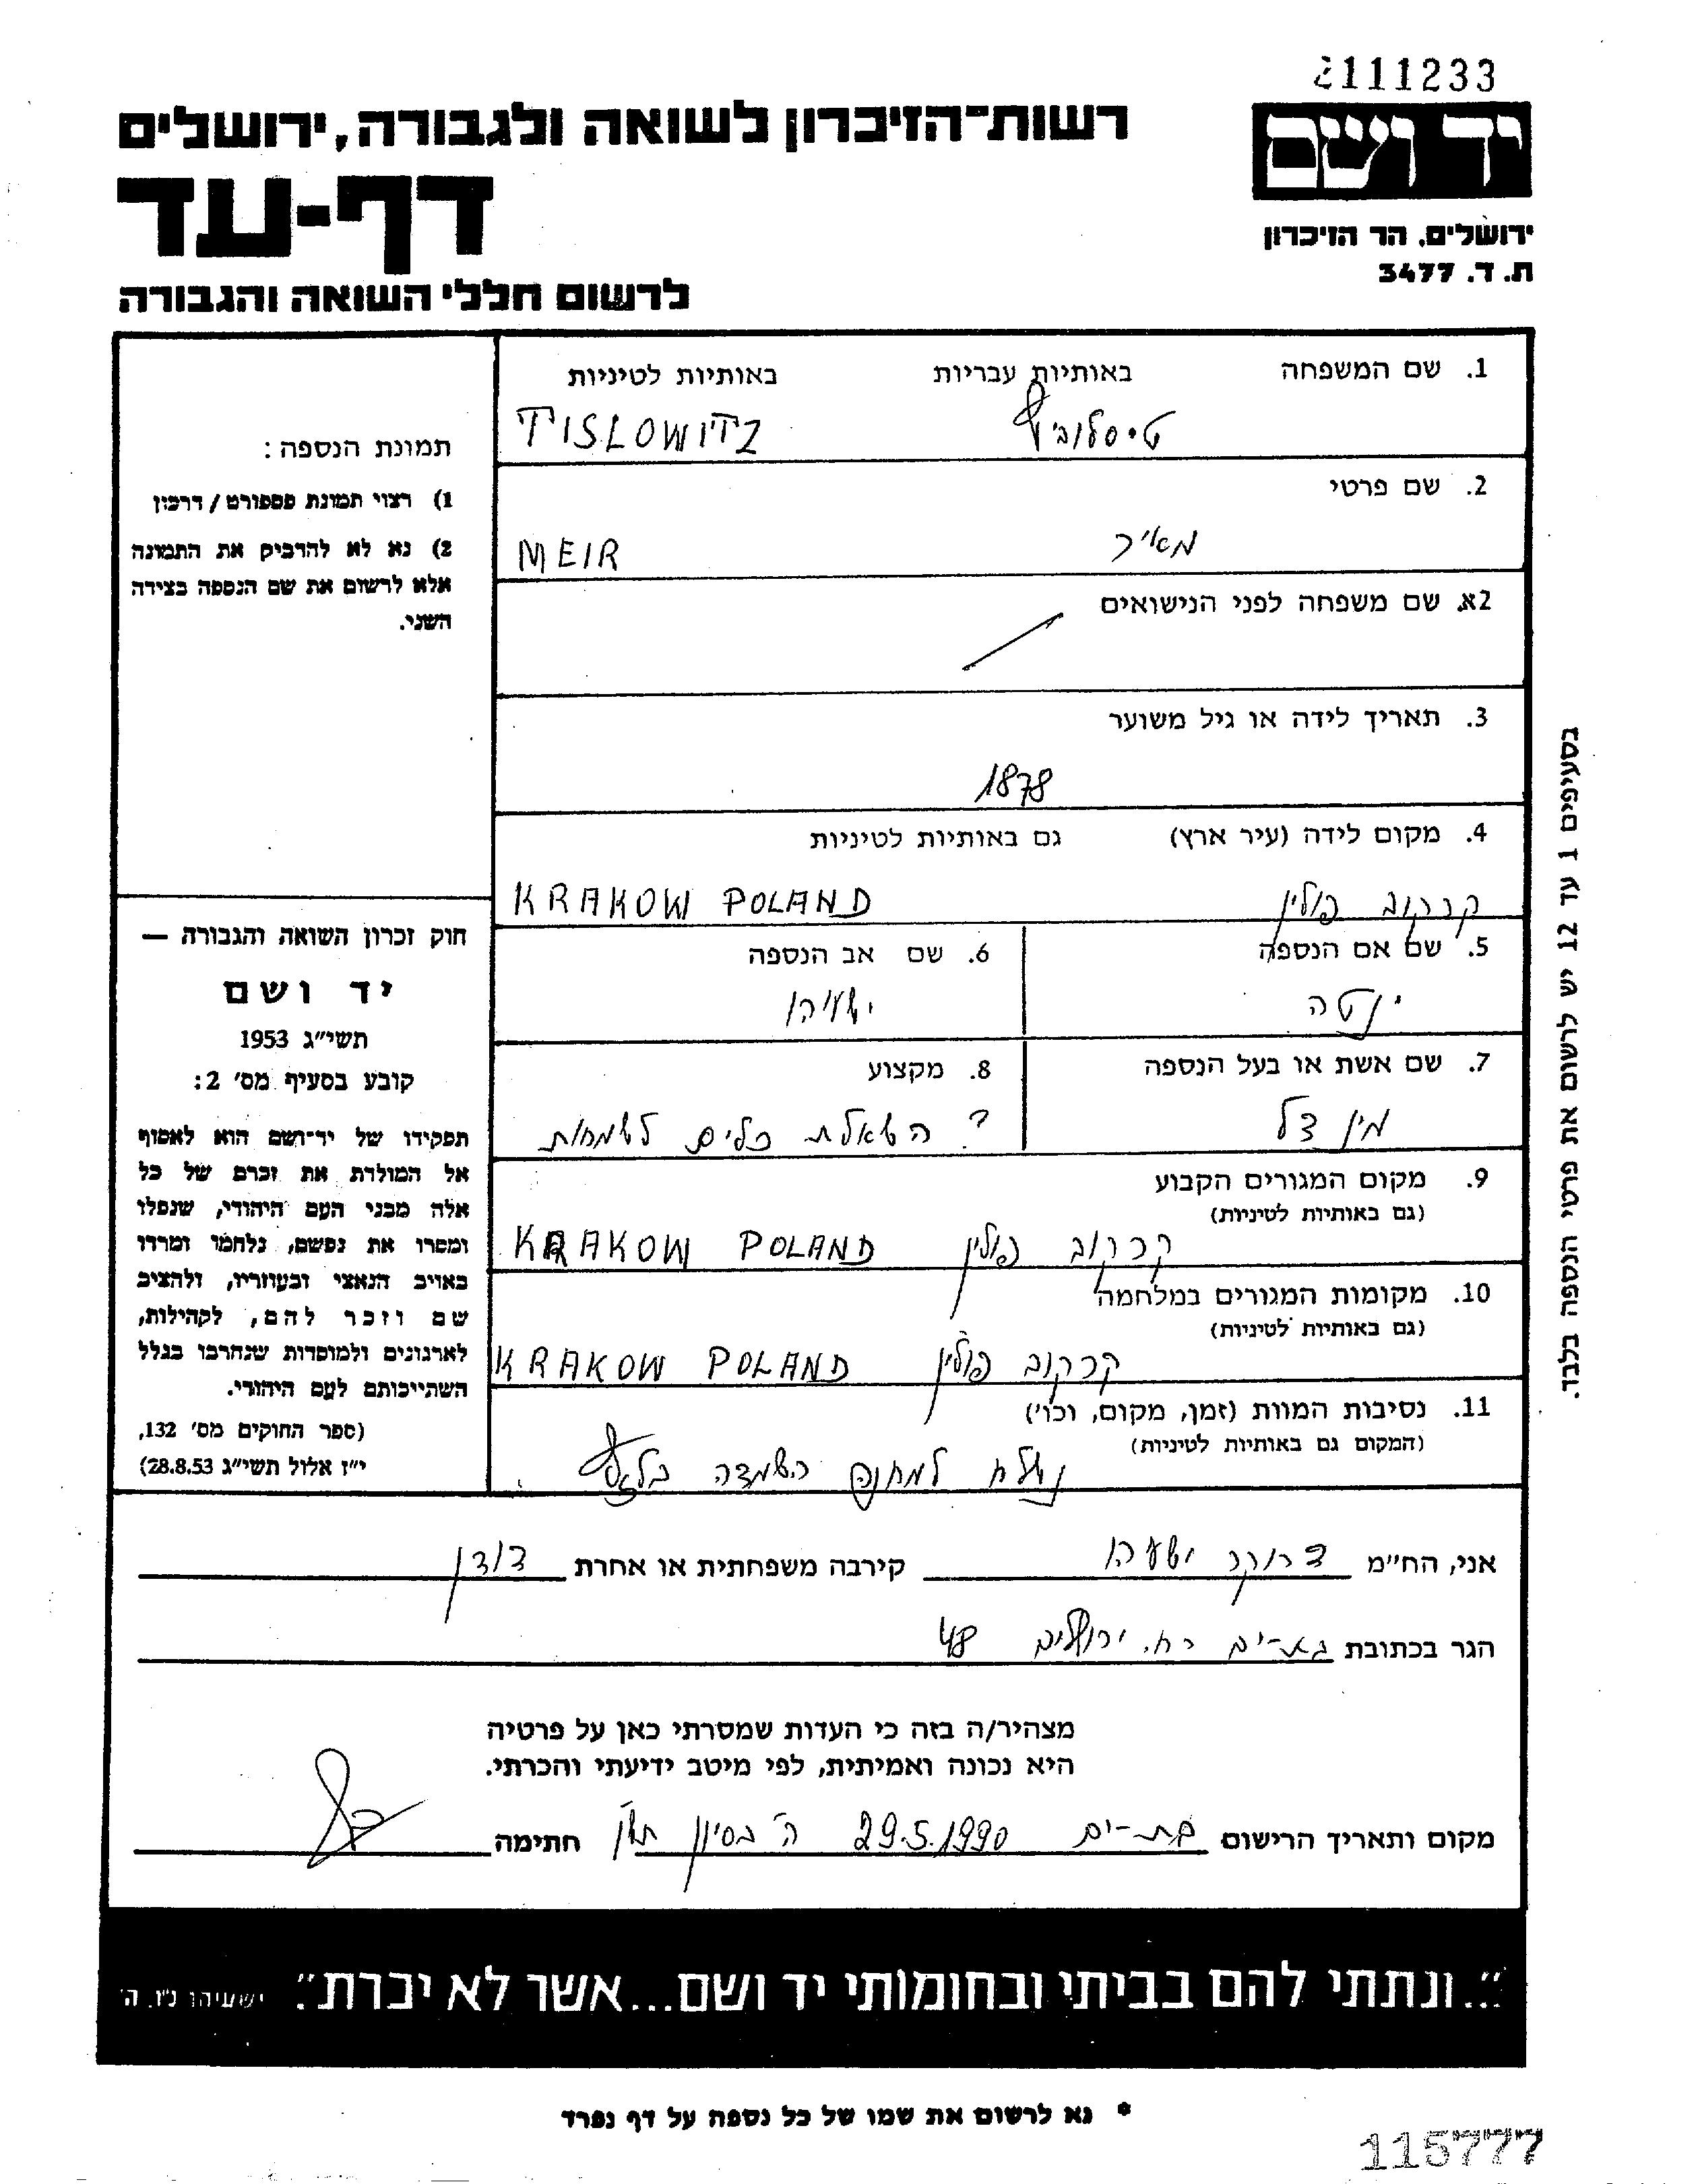 2111233
רשות-הזיכרון לשואה ולגבורה, ירושלים
יד ושם
דף-עד
ירושלים, הר הזיכרון
ת. ד. 3477
לרשום חללי השואה והגבורה
1. שם המשפחה באותיות עבריות באותיות לטיניות
טיסלוביץ TISLOWITZ
2. שם פרטי
מאיר MEIR
2א. שם משפחה לפני הנישואים
3. תאריך לידה או גיל משוער
1878
4. מקום לידה (עיר ארץ) גם באותיות לטיניות
קרקוב פולין KRAKOW POLAND
5. שם אם הנספה 6. שם אב הנספה
ינטה ישעיהו
7. שם אשת או בעל הנספה 8. מקצוע
מינדל ? השאלת כלים לשמחות
9. מקום המגורים הקבוע
(גם באותיות לטיניות)
קרקוב פולין KRAKOW POLAND
10. מקומות המגורים במלחמה
(גם באותיות לטיניות)
קרקוב פולין KRAKOW POLAND
11. נסיבות המוות (זמן, מקום, וכו')
(המקום גם באותיות לטיניות)
נשלח למחנה השמדה בלזץ
תמונת הנספה:
1) רצוי תמונת פספורט / דרכון
2) נא לא להדביק את התמונה
אלא לרשום את שם הנספה בצידה
השני.
חוק זכרון השואה והגבורה —
יד ושם
תשי"ג 1953
קובע בסעיף מס' 2:
תפקידו של יד-ושם הוא לאסוף
אל המולדת את זכרם של כל
אלה מבני העם היהודי, שנפלו
ומסרו את נפשם, נלחמו ומרדו
באויב הנאצי ובעוזריו, ולהציב
שם וזכר להם, לקהילות,
לארגונים ולמוסדות שנחרבו בגלל
השתייכותם לעם היהודי.
(ספר החוקים מס' 132,
י"ז אלול תשי"ג 28.8.53)
בסעיפים 1 עד 12 יש לרשום את פרטי הנספה בלבד.
אני, הח"מ דרוקר ישעיהו קירבה משפחתית או אחרת דודן
הגר בכתובת בת-ים רח. ירושלים 48
מצהיר/ה בזה כי העדות שמסרתי כאן על פרטיה
היא נכונה ואמיתית, לפי מיטב ידיעתי והכרתי.
מקום ותאריך הרישום בת-ים 29.5.1990 ה' בסיון תש"ן חתימה
"...ונתתי להם בביתי ובחומותי יד ושם...אשר לא יכרת". ישעיהו נ"ו, ה'
* נא לרשום את שמו של כל נספה על דף נפרד
115777